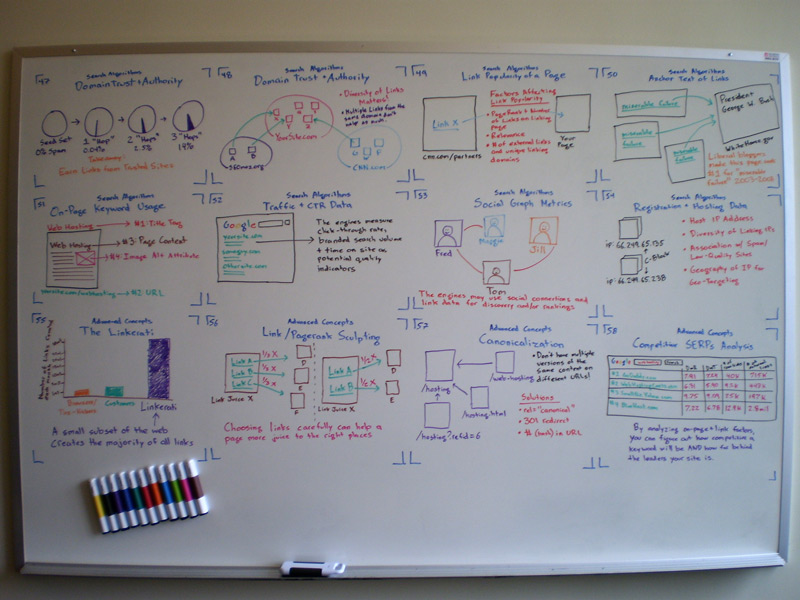 47
Search Algorithms
Domain Trust + Authority
Seed Set
0% Spam
1 "Hop"
2 "Hops"
2.5%
3 "Hops"
14%
Takeaway:
Earn Links from Trusted Sites
48
Search Algorithms
Domain Trust + Authority
• Diversity of Links Matters!
• Multiple Links from the same domain don't
YourSite.com
A
B
CNN.com
49
Search Algorithms
Link Popularity of a Page
Link X
cnn.com/partners
Factors Affecting
Link Popularity
• PageRank + Number of Links on linking page
• Relevance
• # of external links and unique linking domains
Your Page
50
Search Algorithms
Anchor Text of Links
miserable failure
miserable failure
miserable failure
President
George W. Bush
WhiteHouse.gov
Liberal bloggers
made this page rank
#1 for "miserable
failure" 2003-2008
51
On-Page Keyword Usage
Web Hosting
#1: Title Tag
Web Hosting
#3: Page Content
#4: Image Alt Attribute
yoursite.com/webhosting
#2: URL
52
Search Algorithms
Traffic + CTR Data
Google
yoursite.com
othersite.com
The engines measure
click-through rate,
branded search volume
+ time on site as
potential quality
indicators
53
Search Algorithms
Social Graph Metrics
Fred
Jill
Tom
The engines may use social connections and
link data for discovery and/or rankings
54
Search Algorithms
Registration + Hosting Data
ip: 66.249.65.135
C-Block
ip: 66.249.65.238
• Host IP Address
• Diversity of Linking IPs
• Association w/ Spam/
Low-Quality Sites
• Geography of IP for
Geo-Targeting
55
Advanced Concepts
The Linkerati
Customers
Linkerati
A small subset of the web
creates the majority of all links
56
Advanced Concepts
Link/Pagerank Sculpting
Link A
Link B
Link C
1/3 X
1/3 X
1/3 X
D
E
F
Link Juice X
Link A
Link B
1/2 X
1/2 X
D
E
Link Juice X
Choosing links carefully can help a
page more juice to the right places
57
Advanced Concepts
Canonicalization
/web-hosting
/hosting
/hosting.html
/hosting?refid=6
• Don't have multiple
versions of the
same content on
different URLs!
Solutions
• rel="canonical"
• 301 redirect
• # (hash) in URL
58
Advanced Concepts
Competitive SERPs Analysis
Google
By analyzing on-page + link factors,
you can figure out how competitive a
keyword will be AND how far behind
the leaders your site is.